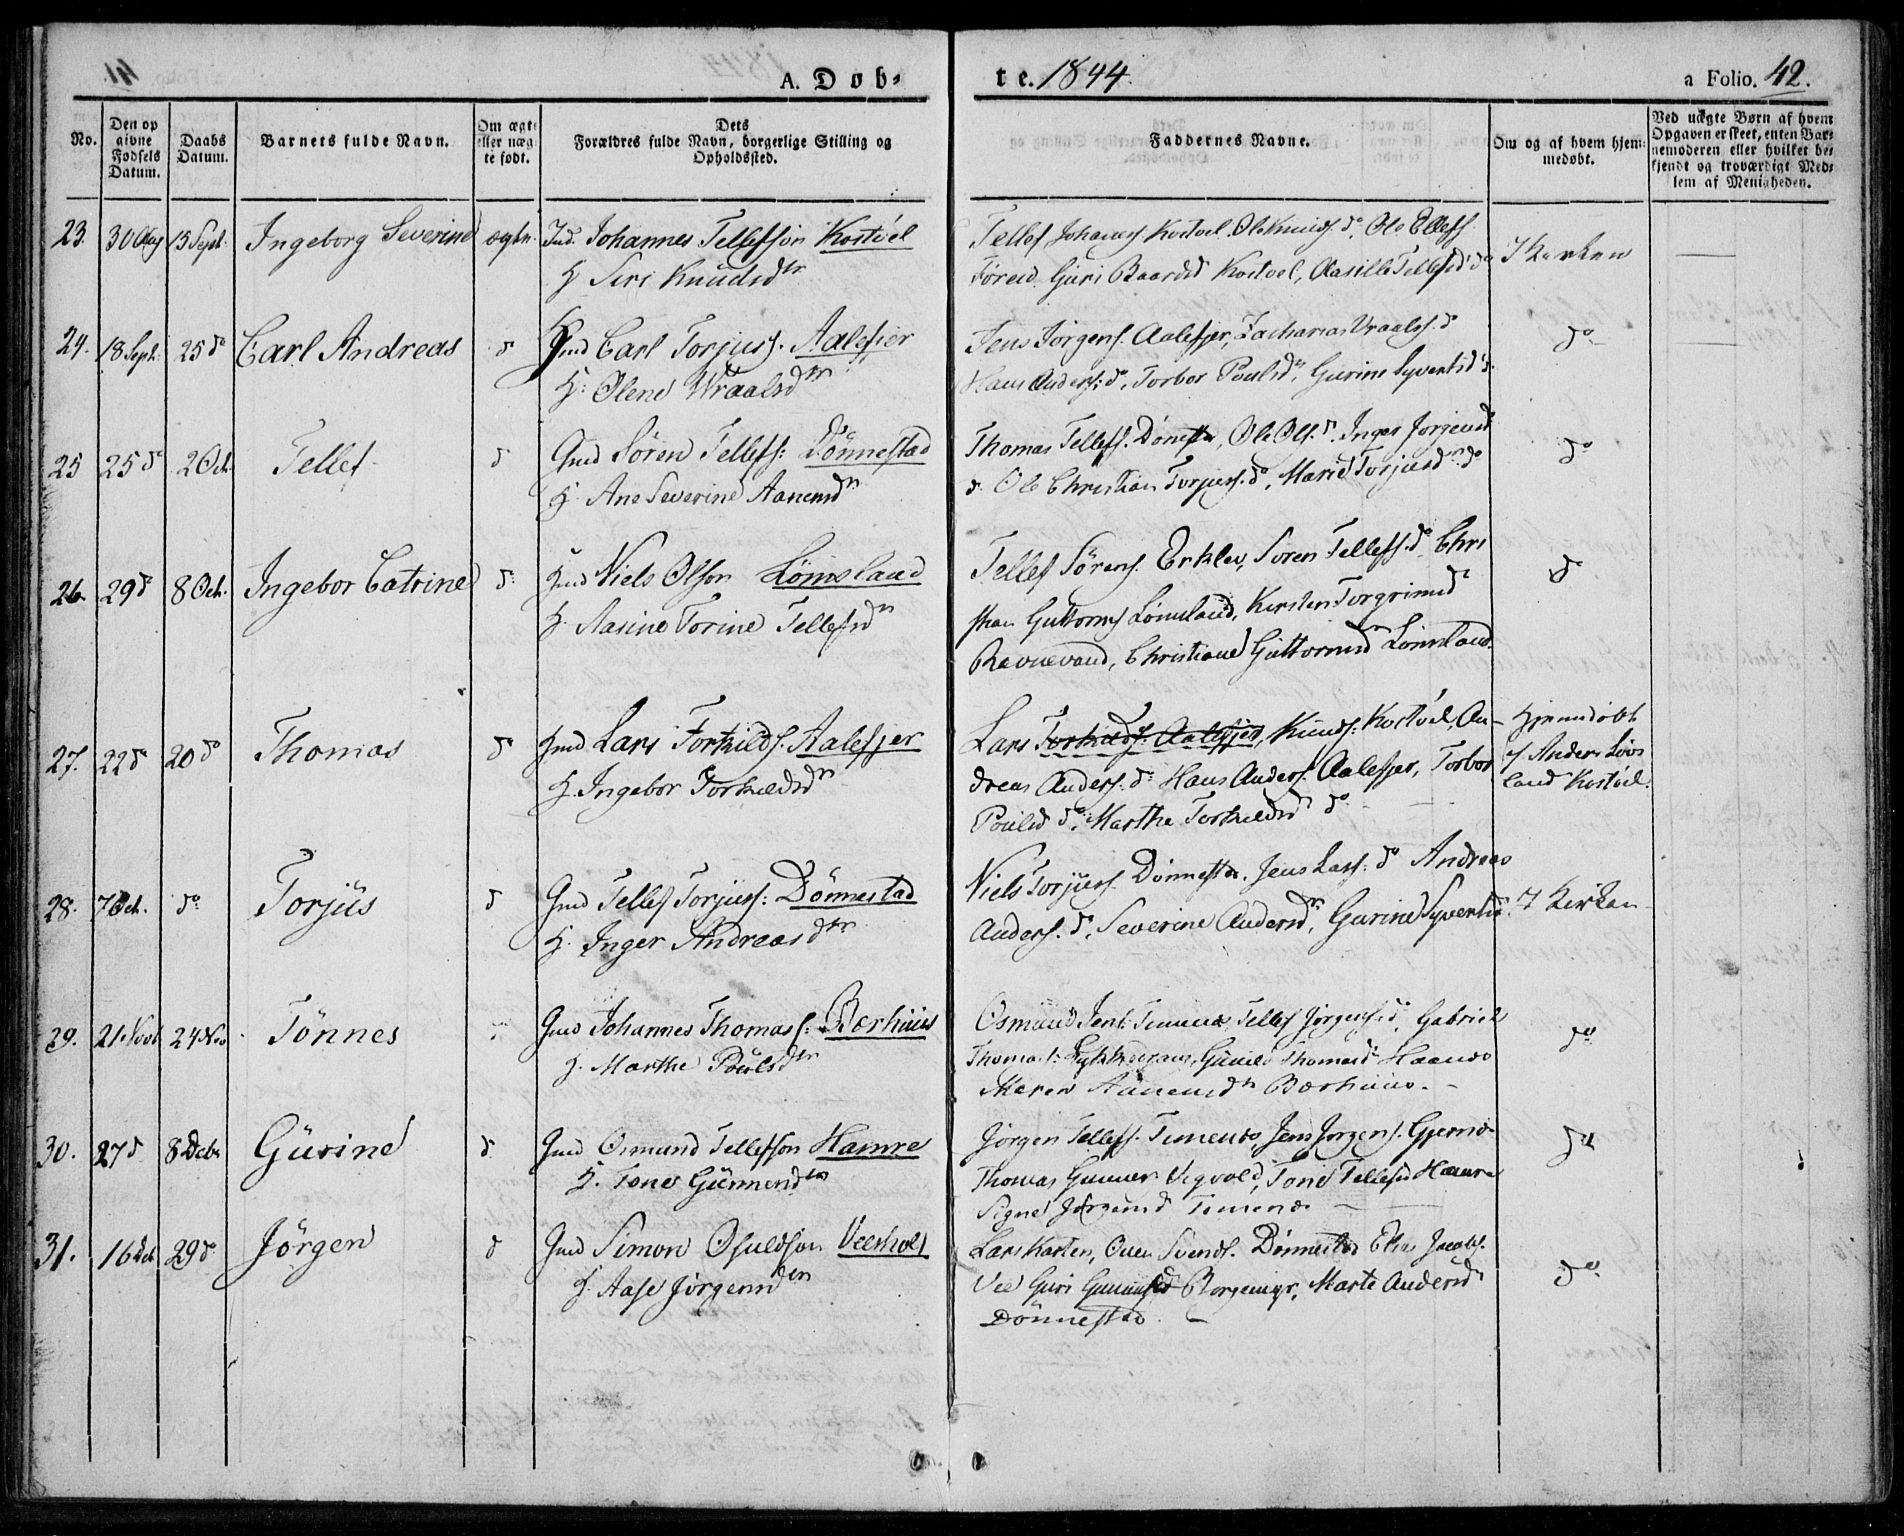 A. Døb-
te. 1844.
a Folio. 42.
No.
Den op
givne
Fødsels
Datum.
Daabs
Datum.
Barnets fulde Navn.
Om ægte
eller uæg
te født.
Dets
Forældres fulde Navn, borgerlige Stilling og
Opholdssted.
Faddernes Navne.
Om og af hvem hjem-
medøbt.
Ved uægte Børn af hvem
Opgaven er skeet, enten Bar-
nemoderen eller hvilket be-
kjendt og troværdigt Med-
lem af Menigheden.
23. 30 Aug 15 Sept. Ingeborg Severine ægte. Ind. Johannes Tellefsøn Kostöel
H Siri Knudsdtr
Tellef Johannes Kostoel. Ole Knuds do. Ole Ellefs
Guri Baardsd Kostoel, Aasille Tellefsd do
I Kirken
24. 18 Sept. 25 do Carl Andreas d Gmd Carl Torjuss. Aalefjer
H: Olene Wraalsdtr
Jens Jörgens. Aalefjer, Zacharias Vraalss. do
Hans Anders: do, Torbor Poulsd, Gurine Syvertsd d.
do
25 25 do 2 Oct. Tellef d Gmd Søren Tellefs: Dönnestad
H Ane Severine Aanensdtr
Thomas Tellefs. Dønest, Ole Ols. d. Inger Jörgensd
d. Ole Christian Torjuss. do, Marie Torjusd do
do
26. 29 d 8 Oct. Ingebor Catrine d: Gmd Niels Olson Lömsland
H. Aasine Torine Tellefsdtr
Tellef Sörens. Erklev, Soren Tellefs. do Chri
stian Guttorms Lömsland, Kirsten Torgrimsd
Ravnevand, Christiane Guttormsd Lömsland.
d
27. 22 d 20 do Thomas d Gmd Lars Torkilds. Aalefjer
H. Ingebor Torkildsdtr
Lars Torkilds: Aalefjer, Knuds: Kostöel, An-
dreas Anders: d: Hans Anders. Aalefjer, Torbor
Poulsd do. Marthe Torkildsd do
Hjemmdöbt
af Anders Löis
land Kostöel.
28. 7 Oct. do Torjüs d Gmd Tellef Torjuss: Dönnestad
H. Inger Andreasdtr
Niels Torjüss. Dönnest. Jens Lars: do Andreas
Anders. d. Severine Andersd. Gurine Syvertsd.
I Kirken
29. 21 Novb 24 Nov Tönnes Gmd Johannes Thomas: Bærhüus
H. Marthe Poulsdtr
Osmund Jens: Timenes, Tellef Jörgens. d. Gabriel
Thomas: Gunild Thomasd
Maren Aanensdtr Bærhuus.
do
30. 27 d 8 Decb. Gürine d Gmd Osmund Tellefsön Hamre
H. Tone Gunnersdtr
Jörgen Tellefs. Timenes, Jens Jörgens.
Thomas Gunners Vigvold, Tone Tellefsd Hamre
Signe Jörgensd Timenes
do
31. 16 Dcb 29 d Jörgen d Gmd Simon Osuldsön Veerholt
H. Aase Jörgensdtr
Lars Karsten, Ouen Svends. Dönnestad Elias Jacobs.
Vee Guri Gunnufsd Borgemyr, Marte Andersd
Dönnestad.
do